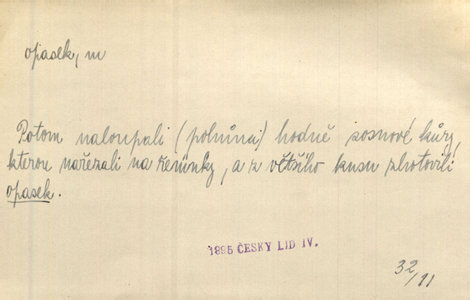 opasek, m
Potom naloupali (polnůnci) hodně sosnové kůry,
kterou nařezali na řemínky, a z většího kusu zhotovili
opasek.
1895 ČESKÝ LID IV.
32/11